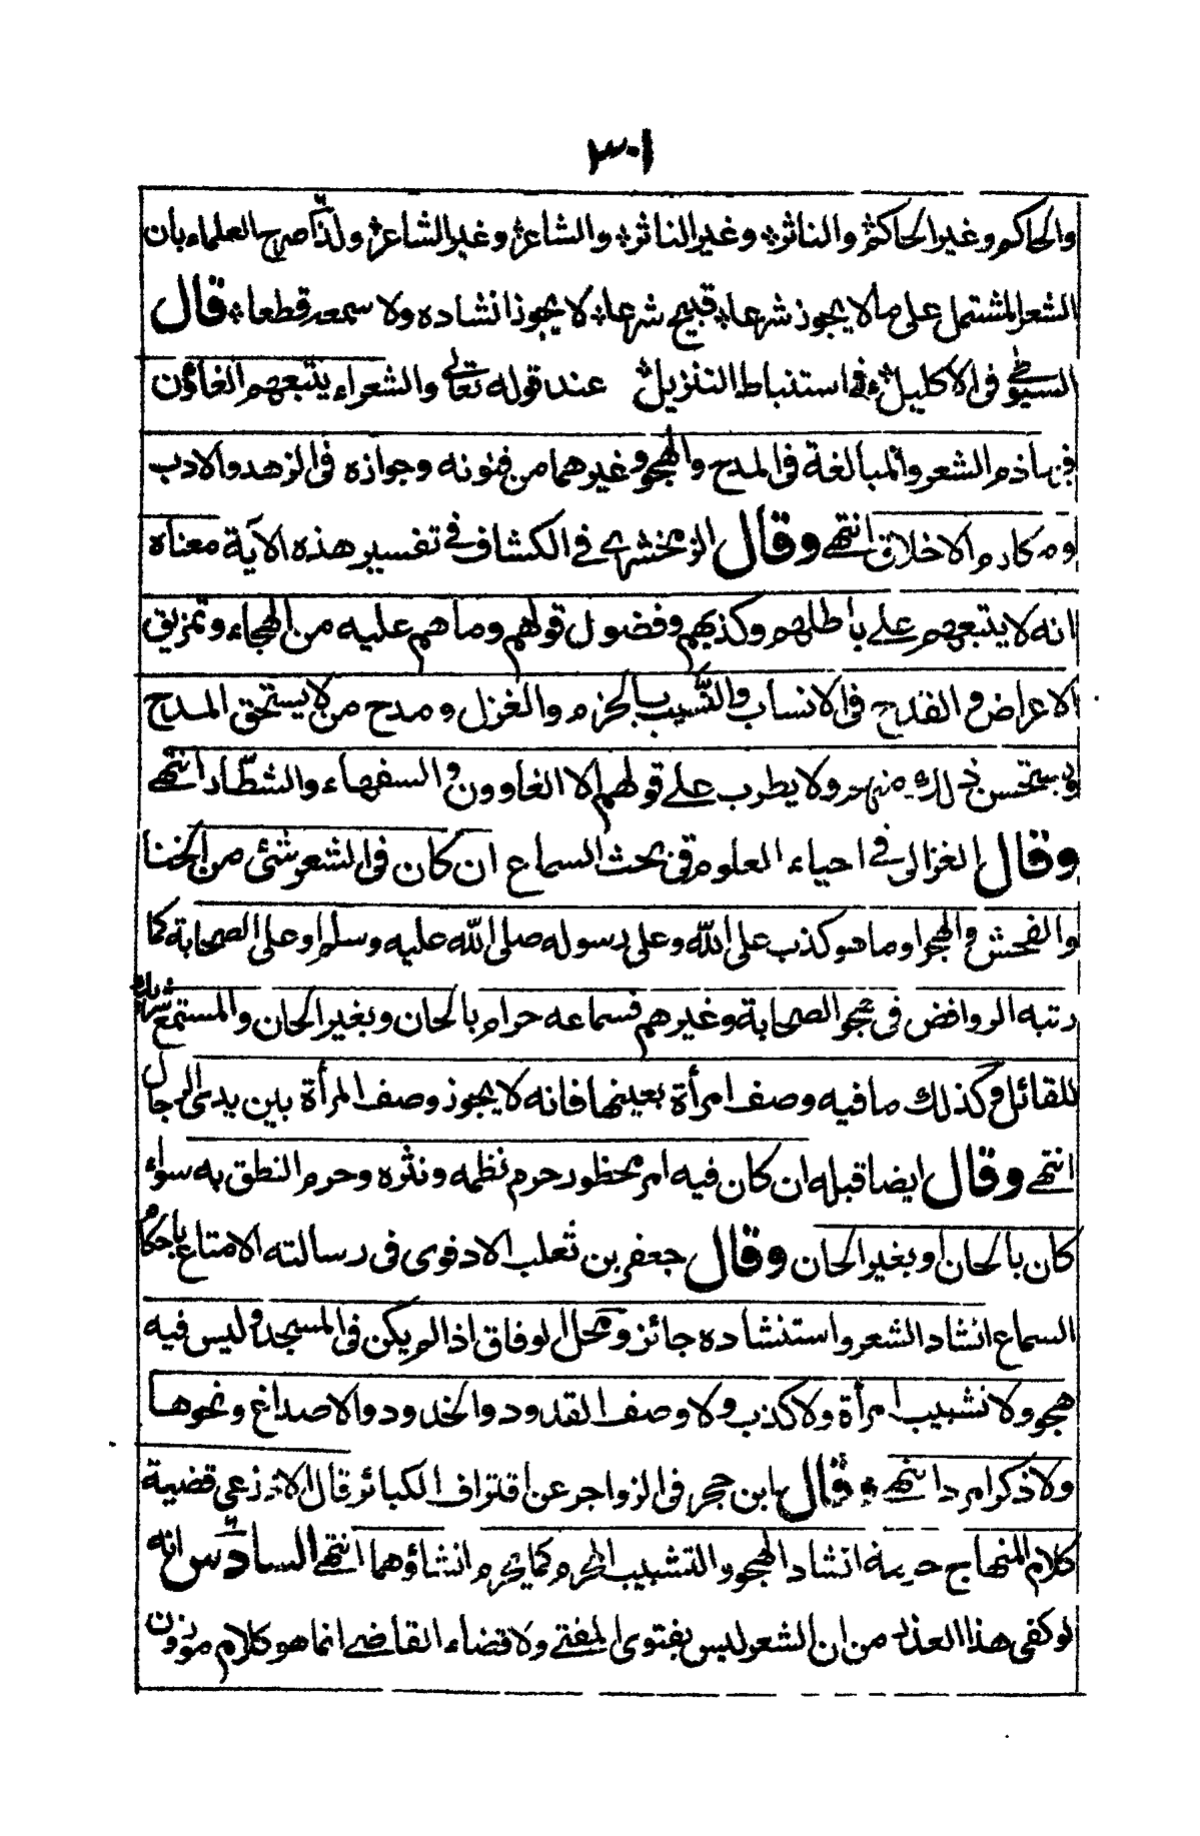 ٣٠١
والحاكم وغير الحاكم؛ والناثر؛ وغير الناثر؛ والشاعر؛ وغير الشاعر؛ ولذا صرح العلماء بان
الشعر المشتمل على ما لا يجوز شرعا؛ قبيح شرعا؛ لا يجوز انشاده ولا سمعه قطعا؛ قال
السيوطي في الاكليل؛ في استنباط التنزيل؛ عند قوله تعالى والشعراء يتبعهم الغاوٗن
فيها ذم الشعر والمبالغة في المدح والهجو وغيرهما من فنونه وجوازه في الزهد والادب
ومكارم الاخلاق انتهى وقال الزمخشري في الكشاف في تفسير هذه الآية معناه
انه لا يتبعهم على باطلهم وكذبهم وفضول قولهم وما هم عليه من الهجاء وتمزيق
الاعراض والقدح في الانساب والتشبيب بالحرم والغزل ومدح من لا يستحق المدح
ويستحسن ذلك منهم ولا يطرب على قولهم الا الغاوون والسفهاء والشطّار انتهى
وقال الغزالى في احياء العلوم في بحث السماع ان كان في الشعر شئ من الخنا
والفحش والهجر او ما هو كذب على الله وعلى رسوله صلى الله عليه وسلم او على الصحابة كما
رتبه الروافض في هجو الصحابة وغيرهم فسماعه حرام بالحان وبغير الحان والمستمع شريك
للقائل وكذلك ما فيه وصف امرأة بعينها فانه لا يجوز وصف المرأة بين يدي الرجال
انتهى وقال ايضا قبله ان كان فيه امر محظور حرم نظمه ونثره وحرم النطق به سواء
كان بالحان او بغير الحان وقال جعفر بن ثعلب الادفوى في رسالته الامتاع باحكام
السماع انشاد الشعر واستنشاده جائز ومحل الوفاق اذا لم يكن في المسجد وليس فيه
هجو ولا تشبيب امرأة ولا كذب ولا وصف القدود والخدود والاصداغ ونحوها
ولا ذكر امرد انتهى؛ وقال ابن حجر في الزواجر عن اقتراف الكبائر قال الاذرعي قضية
كلام المنهاج حرمة انشاد الهجو والتشبيب المحرم كما يحرم انشاؤهما انتهى السادس انه
لو كفى هذا العذر من ان الشعر ليس بفتوى المفتى ولا قضاء القاضى انما هو كلام موزون